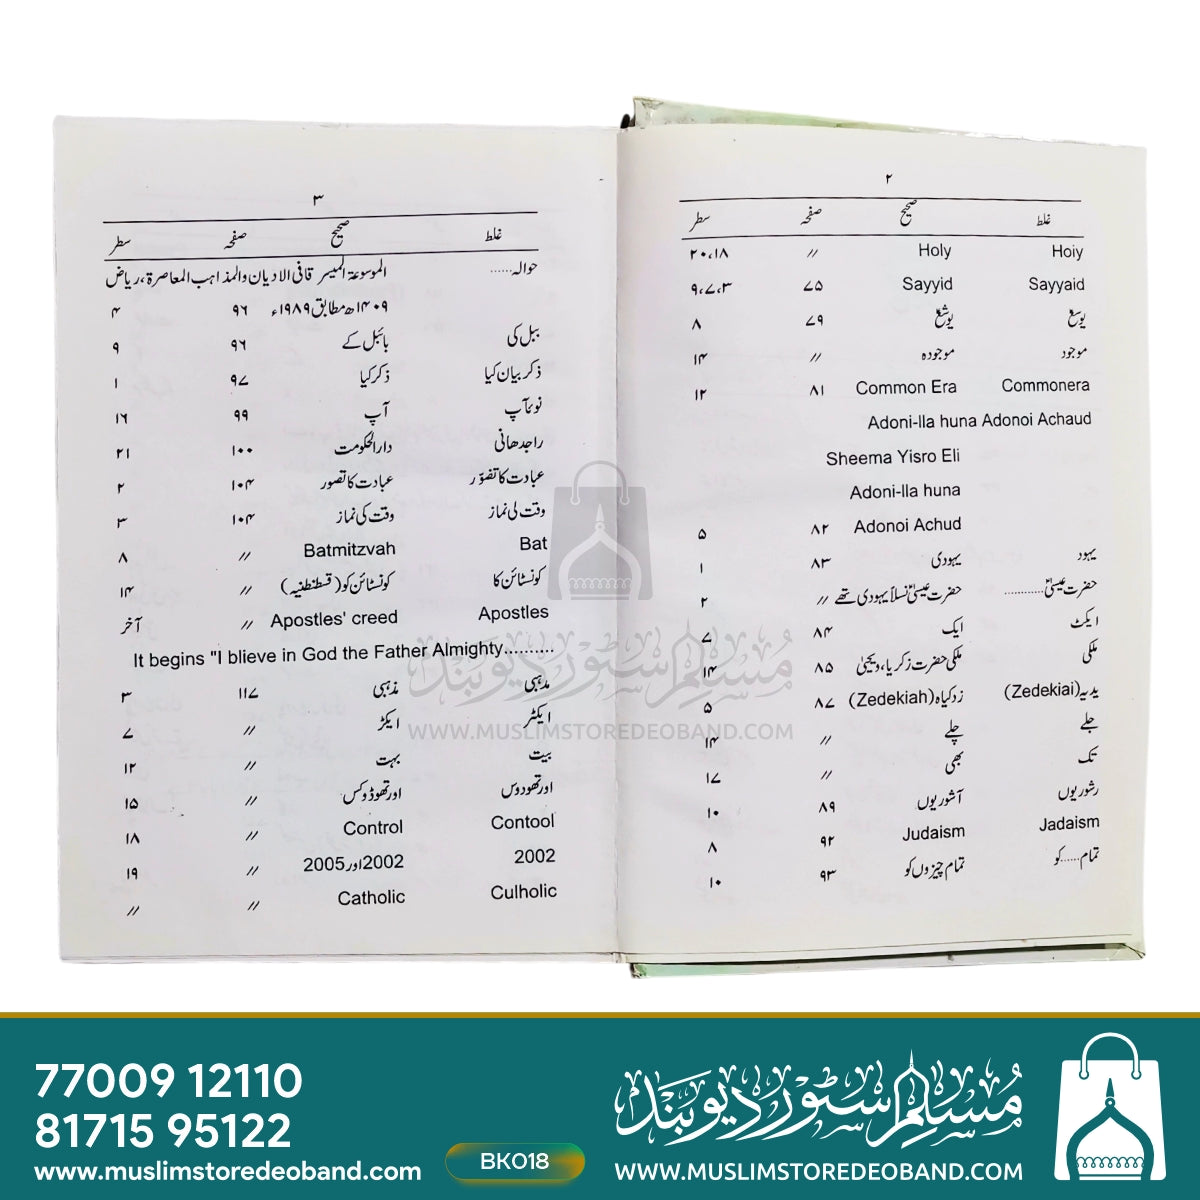 ۲
غلط صحیح صفحہ سطر
Hoiy Holy // ۲۰،۱۸
Sayyaid Sayyid ۷۵ ۹،۷،۳
یوسع یوشع ۷۹ ۸
موجود موجودہ // ۱۴
Commonera Common Era ۸۱ ۱۲
Adoni-lla huna Adonoi Achaud
Sheema Yisro Eli
Adoni-lla huna
Adonoi Achud ۸۲ ۵
یہود یہودی ۸۳ ۱
حضرت عیسیٰؑ............ حضرت عیسیٰؑ نسلاً یہودی تھے // ۲
ایکٹ ایک ۸۴ ۷
ملکی ملکی حضرت زکریا، ویحییٰ ۸۵ ۱۴
یدیہ (Zedekiai) زدکیاہ (Zedekiah) ۸۷ ۵
جلے چلے // ۱۴
تک بھی // ۱۷
رشوریوں آشوریوں ۸۹ ۱۰
Jadaism Judaism ۹۲ ۸
تمام......کو تمام چیزوں کو ۹۳ ۱۰
۳
غلط صحیح صفحہ سطر
حوالہ...... الموسوعۃ المیسرۃ فی الادیان والمذاہب المعاصرۃ، ریاض
۱۴۰۹ھ مطابق ۱۹۸۹ء ۹۶ ۴
ببل کی بائبل کے ۹۶ ۹
ذکر بیان کیا ذکر کیا ۹۷ ۱
نوئآپ آپ ۹۹ ۱۶
راجدھانی دارالحکومت ۱۰۰ ۲۱
عبادت کا تضوّر عبادت کا تصور ۱۰۴ ۲
وقت لی نماز وقت کی نماز ۱۰۴ ۳
Bat Batmitzvah // ۸
کونسٹائن کا کونسٹائن کو (قسطنطنیہ) // ۱۴
Apostles Apostles' creed // آخر
It begins "I blieve in God the Father Almighty..........
مدہبی مذہبی ۱۱۷ ۳
ایکٹر ایکڑ // ۷
بیت بہت // ۱۲
اورتھودوس اورتھوڈوکس // ۱۵
Contool Control // ۱۸
2002 2002اور2005 // ۱۹
Culholic Catholic // //
مسلم سٹور دیوبند
WWW.MUSLIMSTOREDEOBAND.COM
77009 12110
81715 95122
www.muslimstoredeoband.com
BK018
مسلم سٹور دیوبند
WWW.MUSLIMSTOREDEOBAND.COM